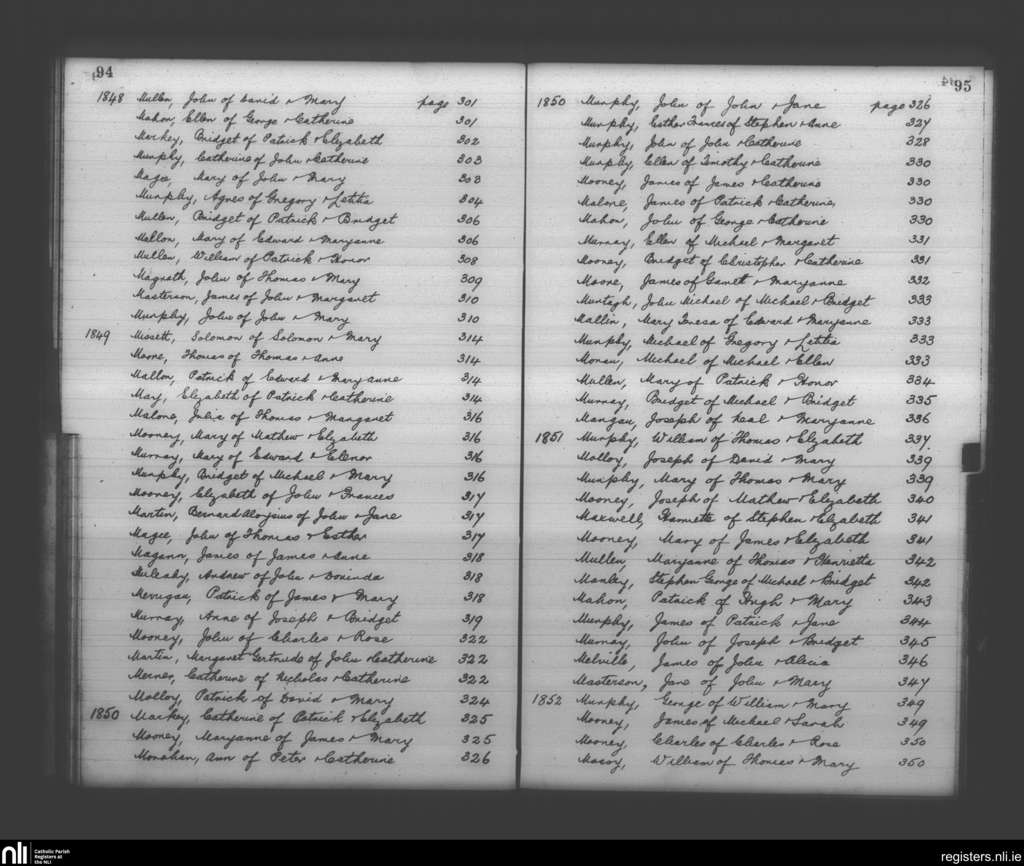 94
1848 Mullen, John of David & Mary page 301
Mahon, Ellen of George & Catherine 301
Markey, Bridget of Patrick & Elizabeth 302
Murphy, Catherine of John & Catherine 303
Magee, Mary of John & Mary 303
Murphy, Agnes of Gregory & Letitia 304
Mullen, Bridget of Patrick & Bridget 306
Mallon, Mary of Edward & Maryanne 306
Mullen, William of Patrick & Honor 308
Magrath, John of Thomas & Mary 309
Masterson, James of John & Margaret 310
Murphy, John of John & Mary 310
1849 Missett, Solomon of Solomon & Mary 314
Moore, Thomas of Thomas & Anne 314
Mallon, Patrick of Edward & Maryanne 314
May, Elizabeth of Patrick & Catherine 314
Malone, Julia of Thomas & Margaret 316
Mooney, Mary of Mathew & Elyabeth 316
Murray, Mary of Edward & Elenor 316
Murphy, Bridget of Michael & Mary 316
Mooney, Elizabeth of John & Frances 317
Martin, Bernard Aloysius of John & Jane 317
Magee, John of Thomas & Esther 317
Magann, James of James & Anne 318
Andrew of John & 318
Merrigan, Patrick of James & Mary 318
Murray, Anne of Joseph & Bridget 319
Mooney, John of Charles & Rose 322
Martin, Margaret Gertrude of John & Catherine 322
Catherine of Nicholas & Catherine 322
Molloy, Patrick of David & Mary 324
1850 Markey, Catherine of Patrick & Elyabeth 325
Mooney, Maryanne of James & Mary 325
Monahen, Ann of Peter & Catherine 326
95
1850 Murphy, John of John & Jane page 326
Murphy, Esther Frances of Stephen & Anne 327
Murphy, John of John & Catherine 328
Murphy, Ellen of Timothy & Catherine 330
Mooney, James of James & Catherine 330
Malone, James of Patrick & Catherine 330
Mahon, John of George & Catherine 330
Murray, Ellen of Michael & Margaret 331
Mooney, Bridget of Christopher & Catherine 331
Moore, James of Garrett & Maryanne 332
Murtagh, John Michael of Michael & Bridget 333
Mallin, Mary Teresa of Edward & Maryanne 333
Murphy, Michael of Gregory & Letitia 333
Moran, Michael of Michael & Ellen 333
Mullen, Mary of Patrick & Honor 334
Murray, Bridget of Michael & Bridget 335
Mangan, Joseph of Neal & Maryanne 336
1851 Murphy, William of Thomas & Elyabeth 337
Molloy, Joseph of David & Mary 339
Murphy, Mary of Thomas & Mary 339
Mooney, Joseph of Mathew & Elyabeth 340
Maxwell, Harriette of Stephen & Elyabeth 341
Mooney, Mary of James & Elyabeth 341
Mullen, Maryanne of Thomas & Henrietta 342
Manley, Stephen George of Michael & Bridget 342
Mahon, Patrick of Hugh & Mary 343
Murphy, James of Patrick & Jane 344
Murray, John of Joseph & Bridget 345
Melville, James of John & Alicia 346
Masterson, Jane of John & Mary 347
1852 Murphy, George of William & Mary 349
Mooney, James of Michael & Sarah 349
Mooney, Charles of Charles & Rose 350
William of Thomas & Mary 350
nli Catholic Parish
Registers at
the NLI
registers.nli.ie